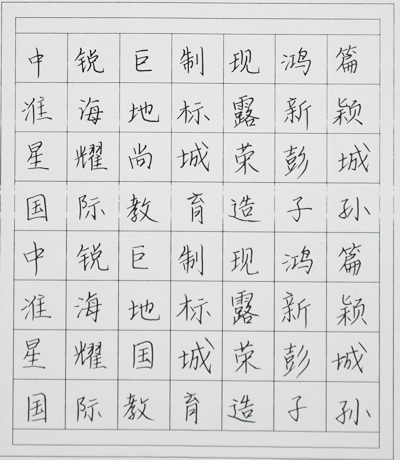 中锐巨制现鸿篇
淮海地标露新颖
星耀尚城荣彭城
国际教育造子孙
中锐巨制现鸿篇
淮海地标露新颖
星耀国城荣彭城
国际教育造子孙